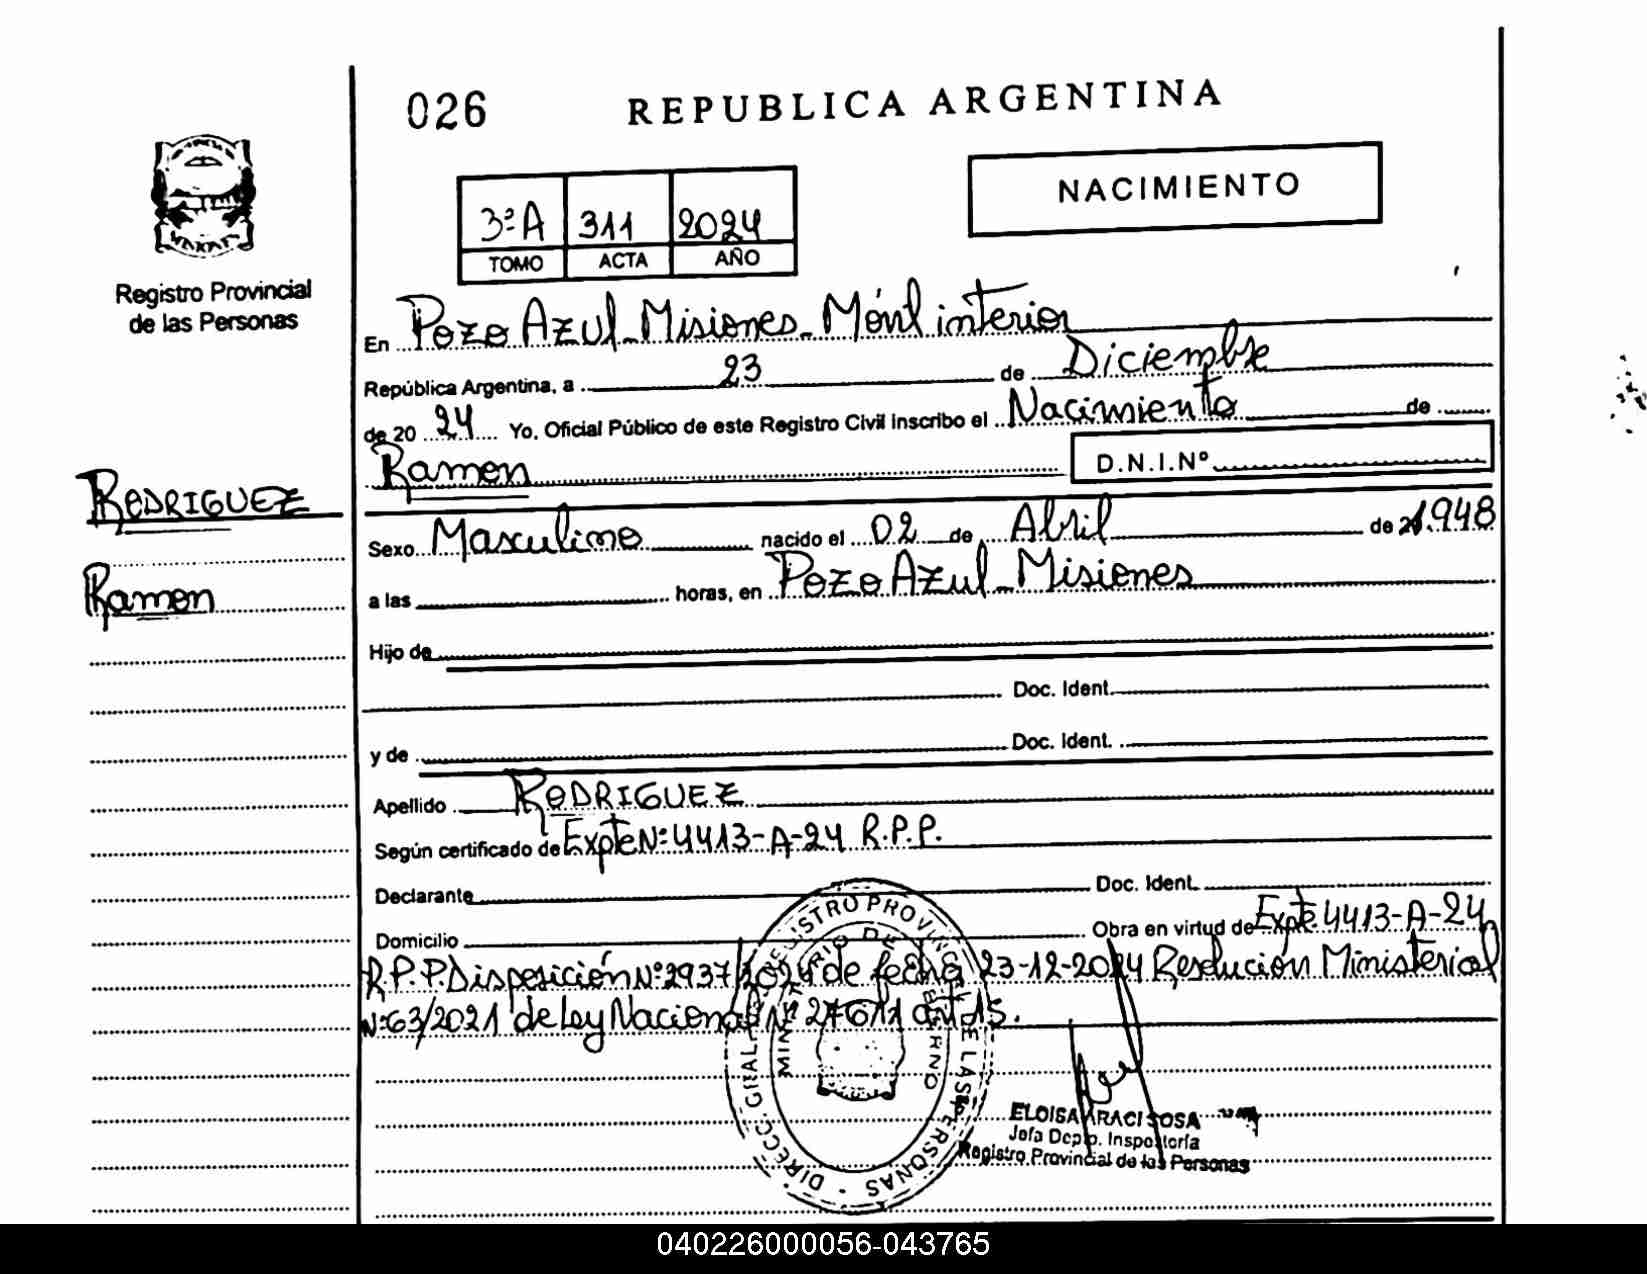 026 REPUBLICA ARGENTINA
NACIMIENTO
3ª A 311 2024
TOMO ACTA AÑO
Registro Provincial
de las Personas
En Pozo Azul - Misiones - Móvil interior
República Argentina, a 23 de Diciembre
de 2024 Yo, Oficial Público de este Registro Civil inscribo el Nacimiento de
Ramon D.N.I.Nº
RODRIGUEZ
Ramon
Sexo Masculino nacido el 02 de Abril de 1948
a las horas, en Pozo Azul - Misiones
Hijo de
Doc. Ident.
y de Doc. Ident.
Apellido RODRIGUEZ
Según certificado de Expte Nº: 4413-A-24 R.P.P.
Declarante Doc. Ident.
Domicilio Obra en virtud de Expte 4413-A-24
R.P.P. Disposición Nº: 2937/2024 de fecha 23-12-2024 Resolución Ministerial
Nº: 63/2021 de Ley Nacional Nº 27611 art 15.
DIRECC. GRAL. REGISTRO PROVINCIAL DE LAS PERSONAS
MINISTERIO DE GOBIERNO
ELOISA ARACI SOSA
Jefa Depto. Inspectoría
Registro Provincial de las Personas
040226000056-043765